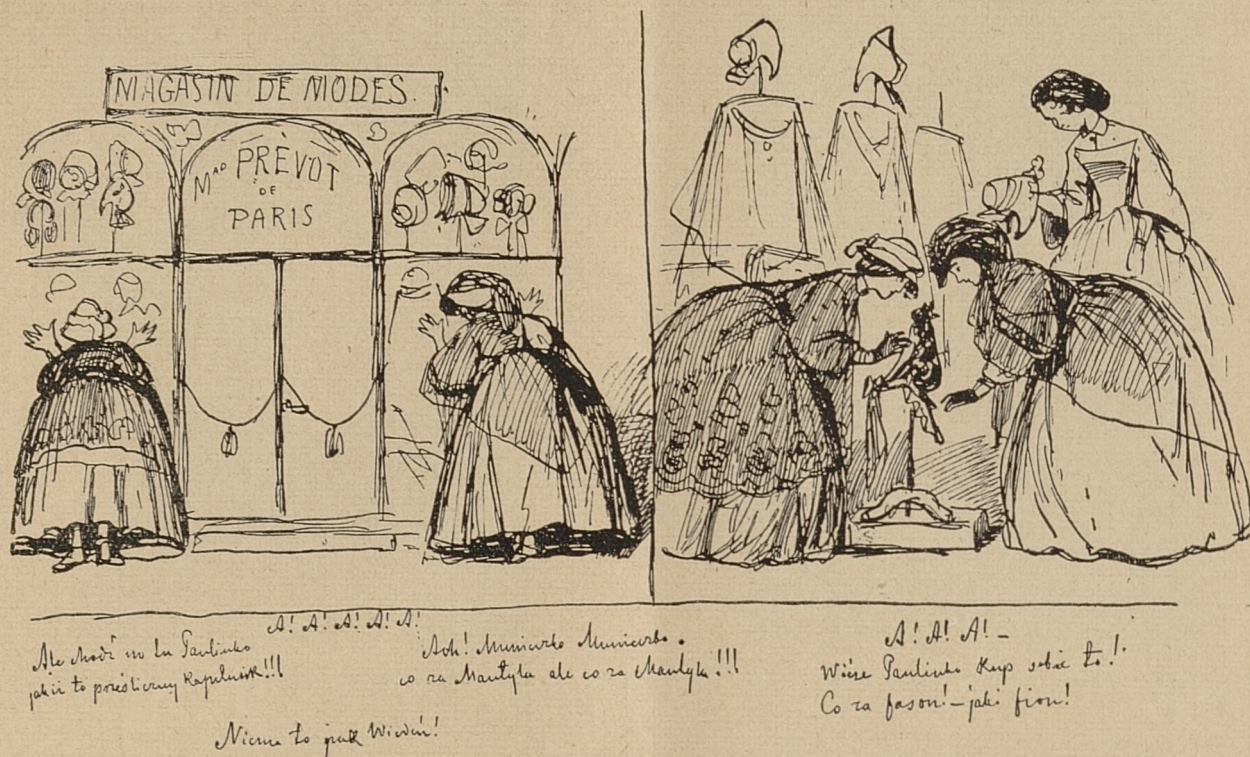 MAGASIN DE MODES.
Mad PREVOT
DE
PARIS
A! A! A! A! A!
Ale chodź no tu Paulinko
jakiż to prześliczny Kapelusik!!!
Ach! Municzko Municzko.
co za Mantyla ale co za Mantyla!!!
Niema to jak Wiedeń!
A! A! A! –
Wiesz Paulinko kup sobie to!
Co za fason! – jaki fion!